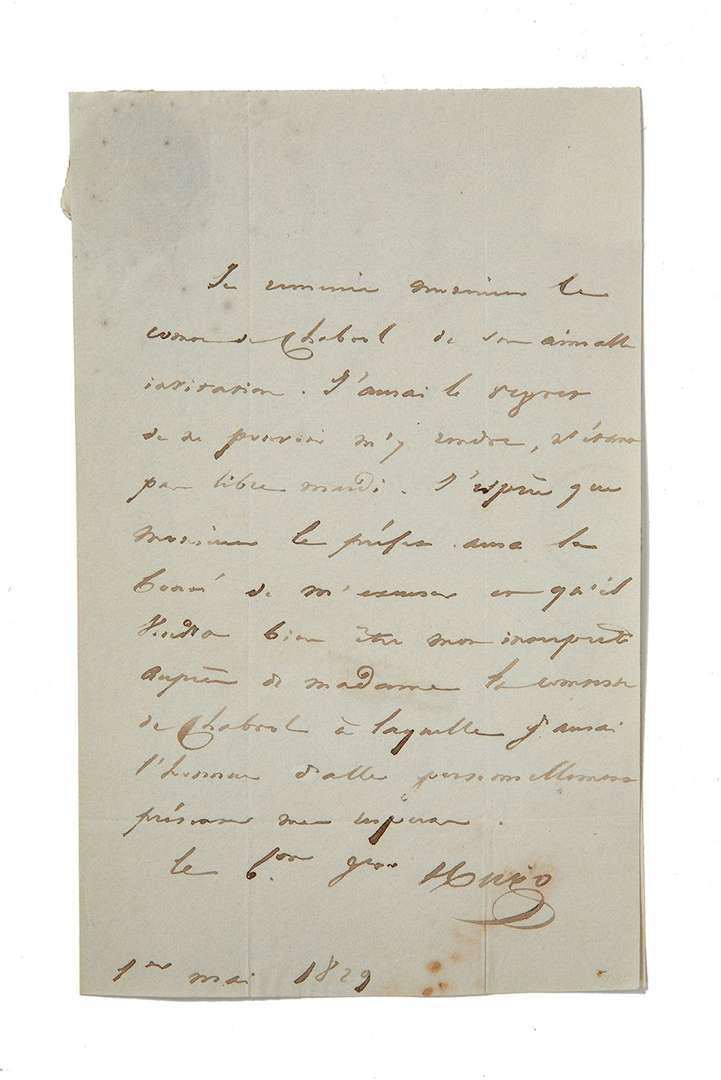 Je remercie monsieur le
comte de Chabrol de son aimable
invitation. J'aurai le regret
de ne pouvoir m'y rendre, n'étant
pas libre mardi. J'espère que
monsieur le préfet aura la
bonté de m'excuser et qu'il
voudra bien être mon interprète
auprès de madame la comtesse
de Chabrol à laquelle j'aurai
l'honneur d'aller personnellement
présenter mes respects.
le b.on g.ral Hugo
1er mai 1829